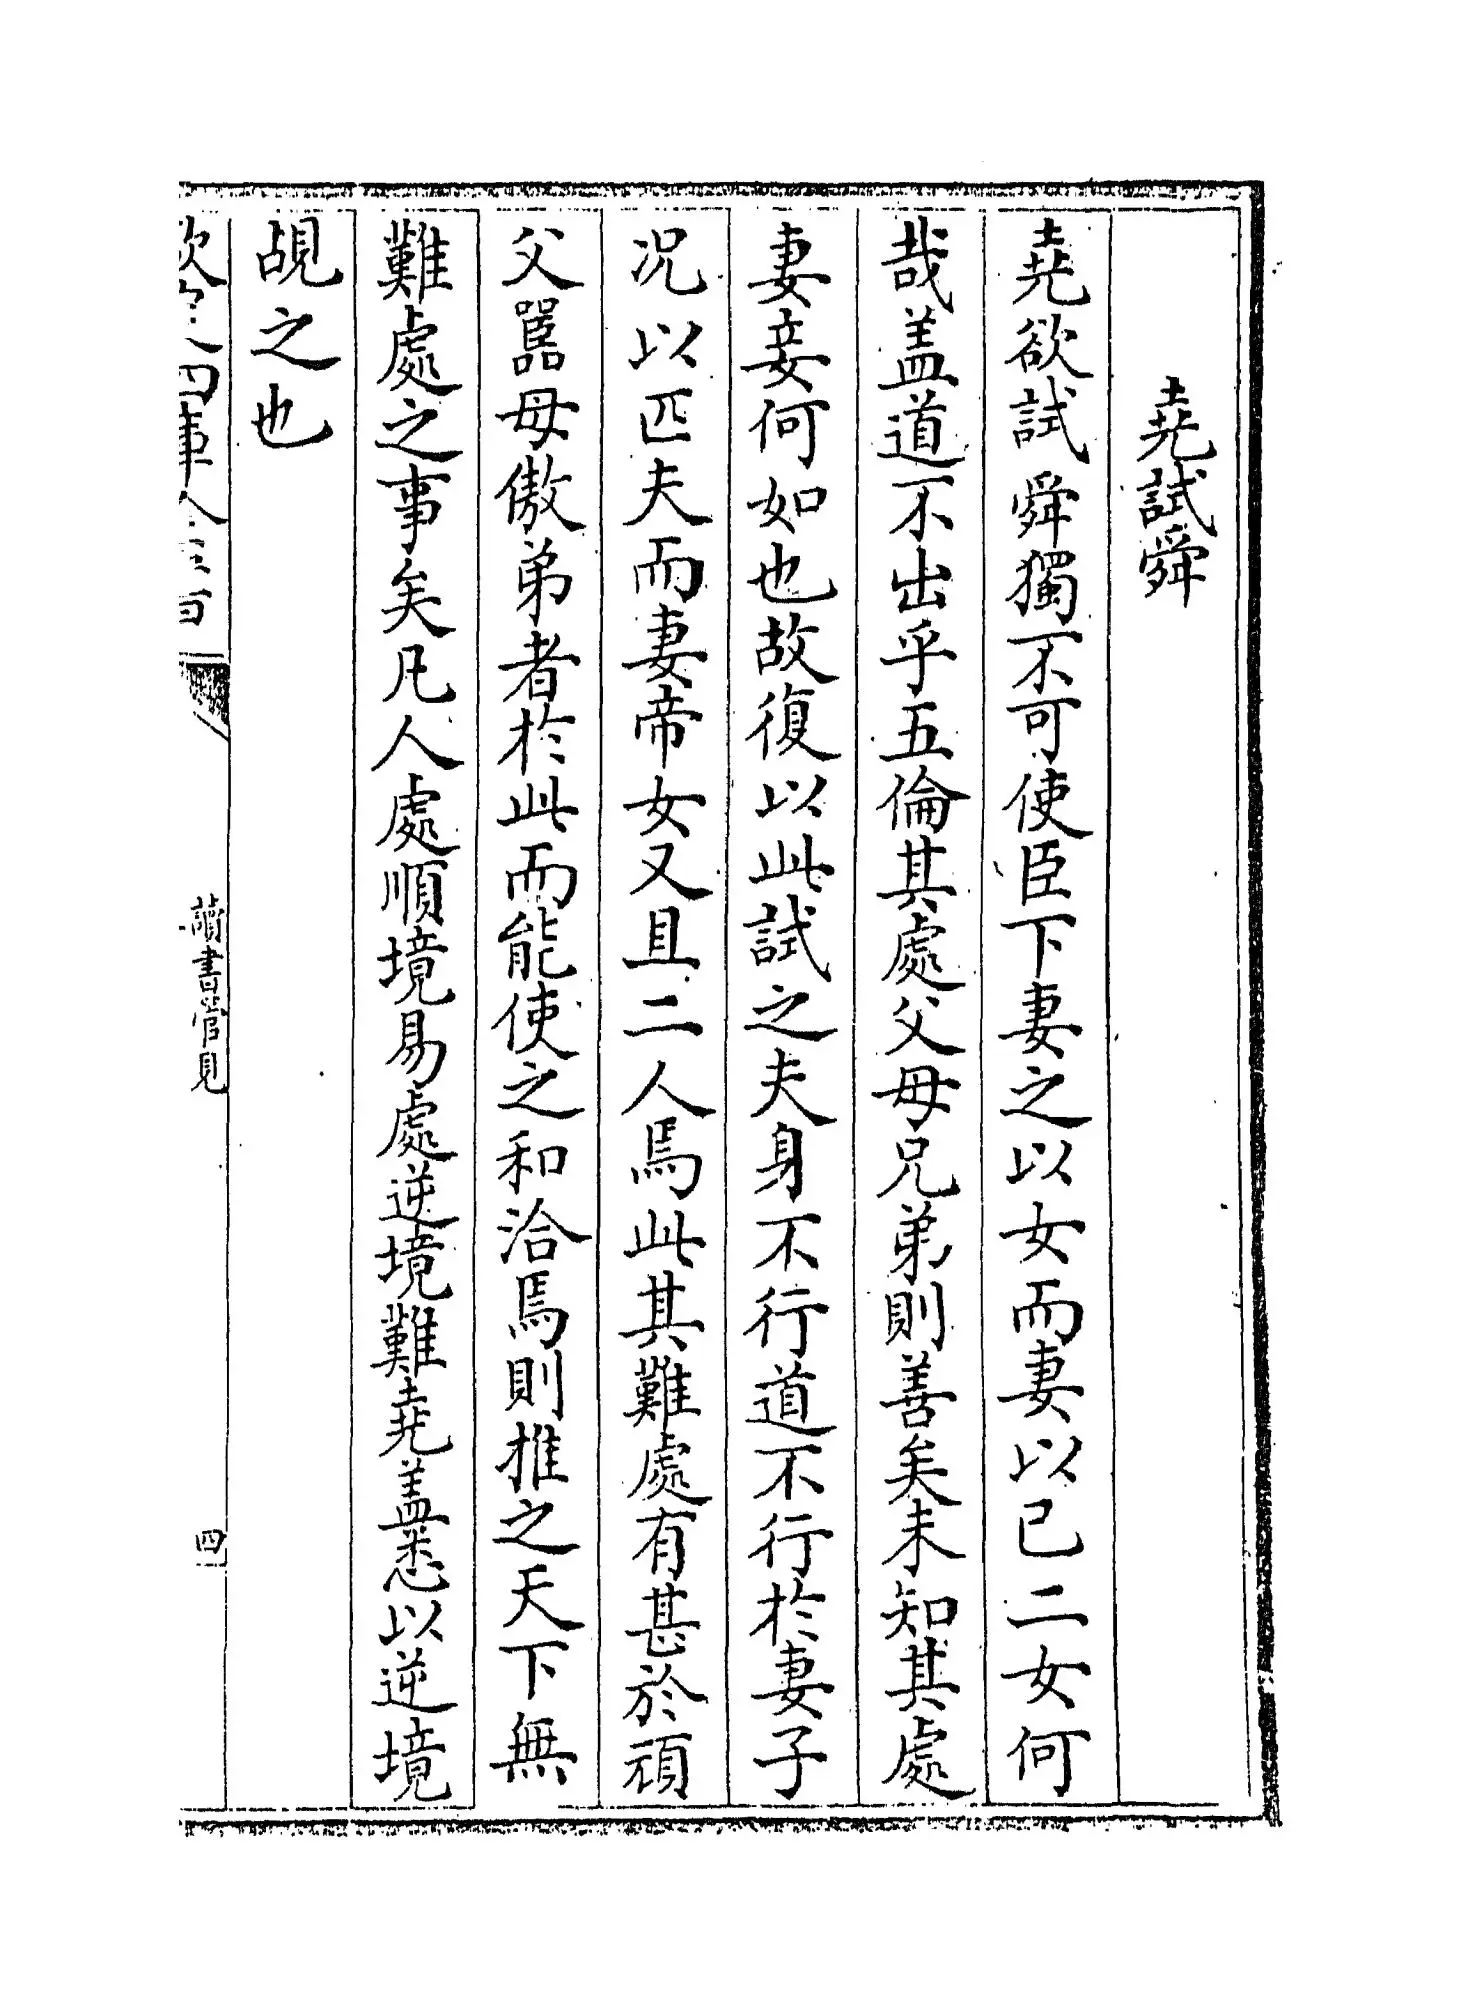 堯試舜
堯欲試舜獨不可使臣下妻之以女而妻以已二女何
哉盖道不出乎五倫其處父母兄弟則善矣未知其處
妻妾何如也故復以此試之夫身不行道不行於妻子
况以匹夫而妻帝女又且二人焉此其難處有甚於頑
父嚚母傲弟者於此而能使之和洽焉則推之天下無
難處之事矣凡人處順境易處逆境難堯盖悉以逆境
覘之也
欽定四庫全書
讀書管見
四